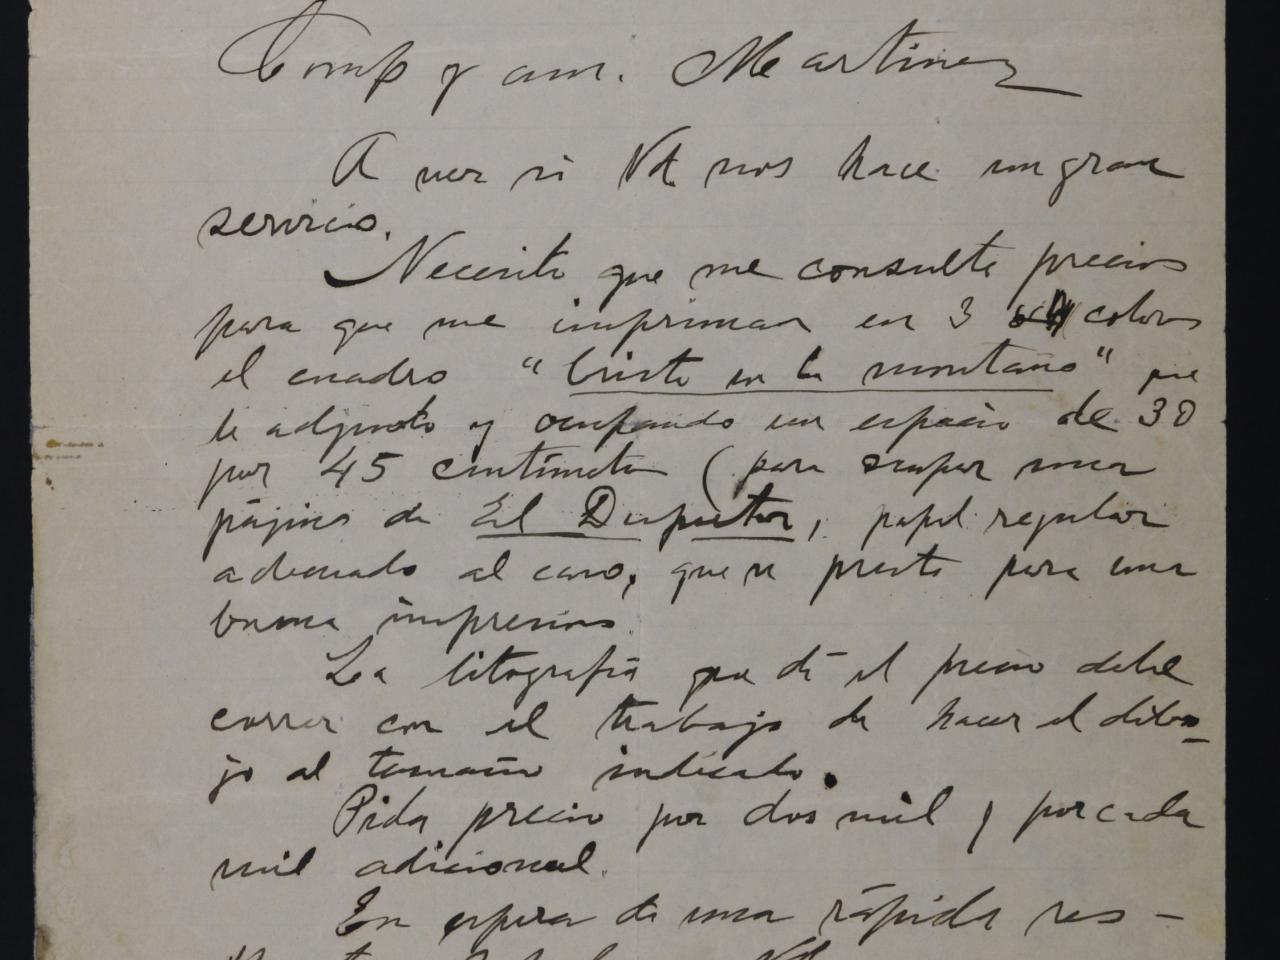 Comp y am. Martinez
A ver si Vd. nos hace un gran
servicio.
Necesito que me consulte precios
para que me impriman en 3 colores
el cuadro "Cristo en la montaña" que
le adjunto y ocupando un espacio de 30
por 45 centímetros (para ocupar una
página de El Despertar, papel regular
adecuado al caso, que se preste para una
buena impresion.
La litografía que dé el precio debe
correr con el trabajo de hacer el dibu-
jo al tamaño indicado.
Pida precio por dos mil y por cada
mil adicional.
En espera de una rápida res-